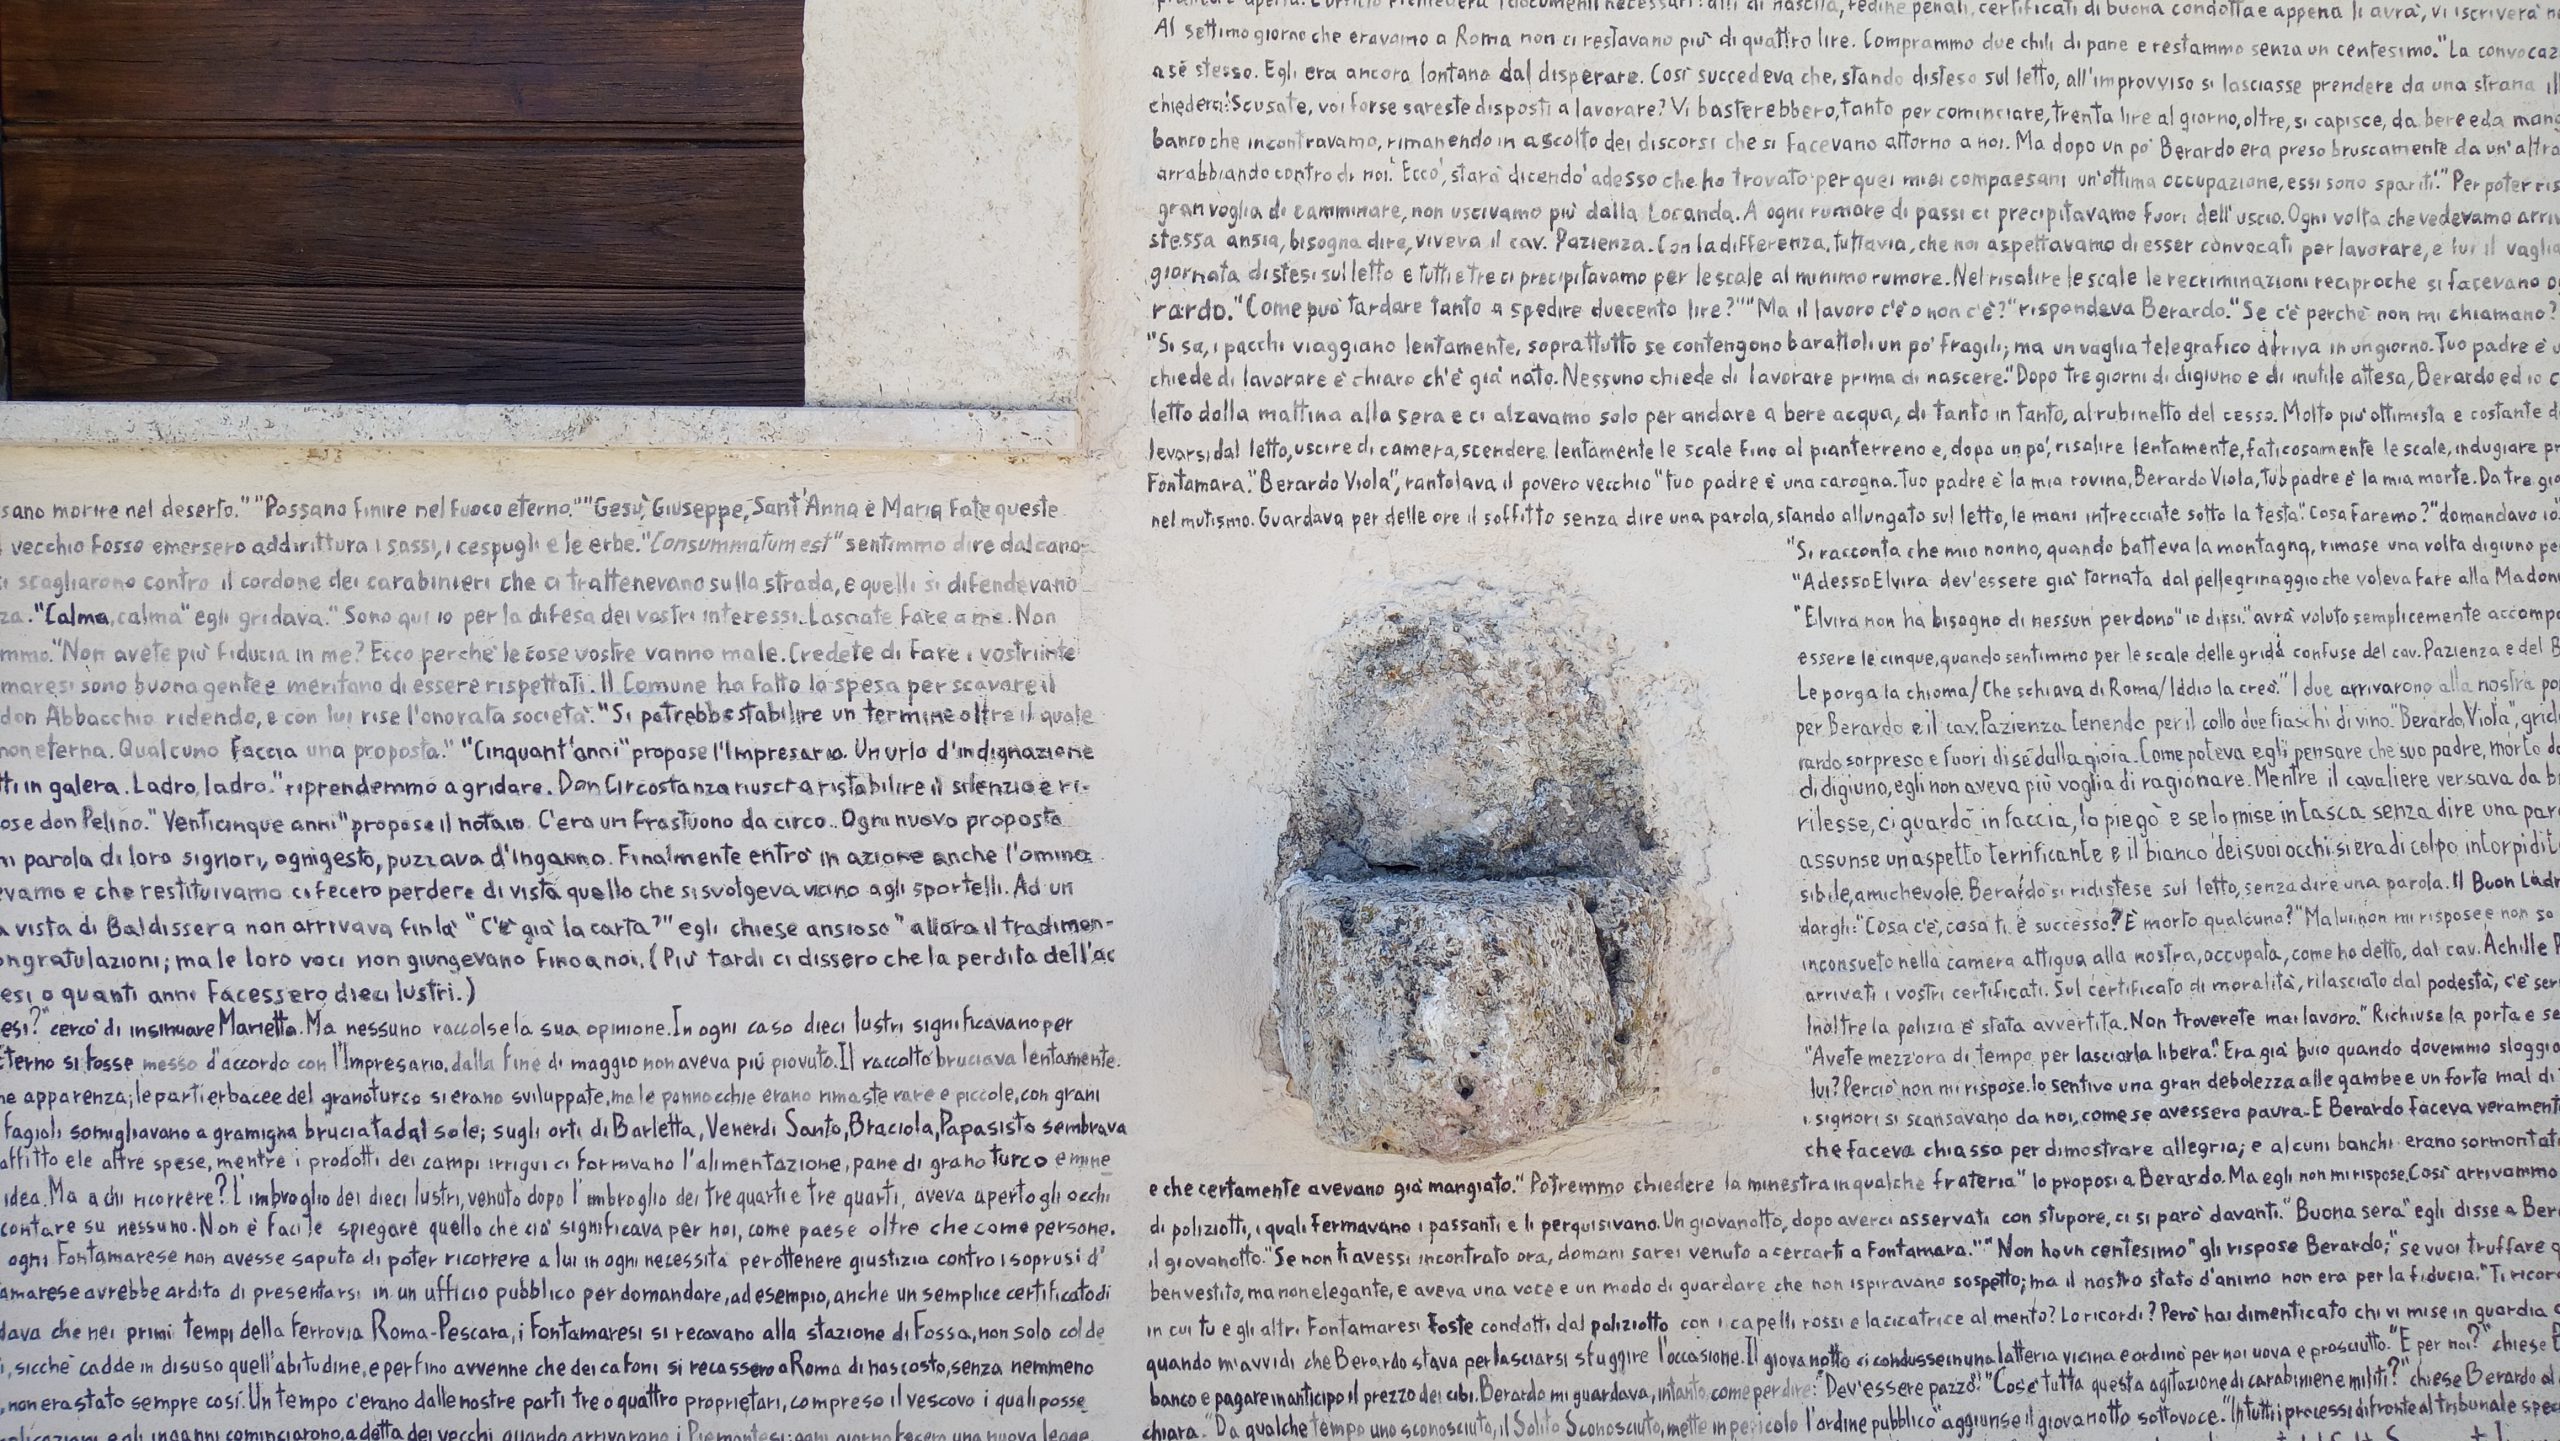 sano morire nel deserto." "Possano finire nel fuoco eterno." "Gesù, Giuseppe, Sant'Anna e Maria fate queste
vecchio fosso emersero addirittura i sassi, i cespugli e le erbe. "Consummatum est" sentimmo dire dal cano-
si scagliarono contro il cordone dei carabinieri che ci trattenevano sulla strada, e quelli si difendevano
za. "Calma, calma" egli gridava. "Sono qui io per la difesa dei vostri interessi. Lasciate fare a me. Non
mmo. "Non avete più fiducia in me? Ecco perchè le cose vostre vanno male. Credete di fare i vostri inte
maresi sono buona gente e meritano di essere rispettati. Il Comune ha fatto la spesa per scavare il
don Abbacchio ridendo, e con lui rise l'onorata società. "Si potrebbe stabilire un termine oltre il quale
non eterna. Qualcuno faccia una proposta." "Cinquant'anni" propose l'Impresario. Un urlo d'indignazione
tti in galera. Ladro, ladro." riprendemmo a gridare. Don Circostanza riuscì a ristabilire il silenzio e ri-
ose don Pelino. "Venticinque anni" propose il notaio. C'era un frastuono da circo. Ogni nuova proposta
ni parola di loro signori, ogni gesto, puzzava d'inganno. Finalmente entrò in azione anche l'omino
evamo e che restituivamo ci fecero perdere di vista quello che si svolgeva vicino agli sportelli. Ad un
a vista di Baldissera non arrivava fin là "C'è già la carta?" egli chiese ansioso "allora il tradimen-
ongratulazioni; ma le loro voci non giungevano fino a noi. (Più tardi ci dissero che la perdita dell'ac
esi o quanti anni facessero dieci lustri.)
esi?" cercò di insinuare Marietta. Ma nessuno raccolse la sua opinione. In ogni caso dieci lustri significavano per
Eterno si fosse messo d'accordo con l'Impresario, dalla fine di maggio non aveva più piovuto. Il raccolto bruciava lentamente.
ne apparenza; le parti erbacee del granoturco si erano sviluppate, ma le pannocchie erano rimaste rare e piccole, con grani
fagioli somigliavano a gramigna bruciata dal sole; sugli orti di Barletta, Venerdì Santo, Braciola, Papasisto sembrava
affitto e le altre spese, mentre i prodotti dei campi irrigui ci fornivano l'alimentazione, pane di grano turco e mine
idea. Ma a chi ricorrere? L'imbroglio dei dieci lustri, venuto dopo l'imbroglio dei tre quarti e tre quarti, aveva aperto gli occhi
contare su nessuno. Non è facile spiegare quello che ciò significava per noi, come paese oltre che come persone.
ogni Fontamarese non avesse saputo di poter ricorrere a lui in ogni necessità per ottenere giustizia contro i soprusi d'
amarese avrebbe ardito di presentarsi in un ufficio pubblico per domandare, ad esempio, anche un semplice certificato di
dava che nei primi tempi della ferrovia Roma-Pescara, i Fontamaresi si recavano alla stazione di Fossa, non solo col de
, sicchè cadde in disuso quell'abitudine, e perfino avvenne che dei cafoni si recassero a Roma di nascosto, senza nemmeno
, non era stato sempre così. Un tempo c'erano dalle nostre parti tre o quattro proprietari, compreso il vescovo i quali posse
e gli inganni cominciarono, a detta dei vecchi, quando arrivarono i Piemontesi; ogni giorno fecero una nuova legge,
L'ufficio richiederà i documenti necessari: atti di nascita, fedine penali, certificati di buona condotta e appena li avrà, vi iscriverà
Al settimo giorno che eravamo a Roma non ci restavano più di quattro lire. Comprammo due chili di pane e restammo senza un centesimo. "La convocaz
a sé stesso. Egli era ancora lontano dal disperare. Così succedeva che, stando disteso sul letto, all'improvviso si lasciasse prendere da una strana il
chiederci: "Scusate, voi forse sareste disposti a lavorare? Vi basterebbero, tanto per cominciare, trenta lire al giorno, oltre, si capisce, da bere e da mang
banco che incontravamo, rimanendo in ascolto dei discorsi che si facevano attorno a noi. Ma dopo un po' Berardo era preso bruscamente da un'altra
arrabbiando contro di noi. 'Ecco', starà dicendo 'adesso che ho trovato per quei miei compaesani un'ottima occupazione, essi sono spariti'." Per poter ris
gran voglia di camminare, non uscivamo più dalla Locanda. A ogni rumore di passi ci precipitavamo fuori dell'uscio. Ogni volta che vedevamo arriv
stessa ansia, bisogna dire, viveva il cav. Pazienza. Con la differenza, tuttavia, che noi aspettavamo di esser convocati per lavorare, e lui il vaglia
giornata distesi sul letto e tutti e tre ci precipitavamo per le scale al minimo rumore. Nel risalire le scale le recriminazioni reciproche si facevano
rardo. "Come può tardare tanto a spedire duecento lire?" "Ma il lavoro c'è o non c'è?" rispondeva Berardo. "Se c'è perchè non mi chiamano?
"Si sa, i pacchi viaggiano lentamente, soprattutto se contengono barattoli un po' fragili; ma un vaglia telegrafico arriva in un giorno. Tuo padre è
chiede di lavorare è chiaro ch'è già nato. Nessuno chiede di lavorare prima di nascere." Dopo tre giorni di digiuno e di inutile attesa, Berardo ed io c
letto dalla mattina alla sera e ci alzavamo solo per andare a bere acqua, di tanto in tanto, al rubinetto del cesso. Molto più ottimista e costante d
levarsi dal letto, uscire di camera, scendere lentamente le scale fino al pianterreno e, dopo un po', risalire lentamente, faticosamente le scale, indugiare pr
Fontamara. "Berardo Viola", rantolava il povero vecchio "tuo padre è una carogna. Tuo padre è la mia rovina, Berardo Viola, tuo padre è la mia morte. Da tre gio
nel mutismo. Guardava per delle ore il soffitto senza dire una parola, stando allungato sul letto, le mani intrecciate sotto la testa. "Cosa faremo?" domandavo io.
"Si racconta che mio nonno, quando batteva la montagna, rimase una volta digiuno pe
"Adesso Elvira dev'essere già tornata dal pellegrinaggio che voleva fare alla Madon
"Elvira non ha bisogno di nessun perdono" io dissi. "avrà voluto semplicemente accompa
essere le cinque, quando sentimmo per le scale delle grida confuse del cav. Pazienza e del B
Le porga la chioma/ Che schiava di Roma/ Iddio la creò." I due arrivarono alla nostra po
per Berardo e il cav. Pazienza tenendo per il collo due fiaschi di vino. "Berardo Viola", grid
rardo sorpreso e fuori di sé dalla gioia. Come poteva egli pensare che suo padre, morto da
di digiuno, egli non aveva più voglia di ragionare. Mentre il cavaliere versava da b
rilesse, ci guardò in faccia, lo piegò e se lo mise in tasca senza dire una par
assunse un aspetto terrificante e il bianco dei suoi occhi si era di colpo intorpidit
sibile, amichevole. Berardo si ridistese sul letto, senza dire una parola. Il Buon Ladr
dargli: "Cosa c'è, cosa ti è successo? È morto qualcuno?" Ma lui non mi rispose e non so
inconsueto nella camera attigua alla nostra, occupata, come ho detto, dal cav. Achille P
arrivati i vostri certificati. Sul certificato di moralità, rilasciato dal podestà, c'è scri
Inoltre la polizia è stata avvertita. Non troverete mai lavoro." Richiuse la porta e se
"Avete mezz'ora di tempo per lasciarla libera". Era già buio quando dovemmo sloggia
lui? Perciò non mi rispose. Io sentivo una gran debolezza alle gambe e un forte mal di
i signori si scansavano da noi, come se avessero paura. E Berardo faceva verament
che faceva chiasso per dimostrare allegria; e alcuni banchi erano sormontati
e che certamente avevano già mangiato. "Potremmo chiedere la minestra in qualche frateria" Io proposi a Berardo. Ma egli non mi rispose. Così arrivammo
di poliziotti, i quali fermavano i passanti e li perquisivano. Un giovanotto, dopo averci osservati con stupore, ci si parò davanti. "Buona sera" egli disse a Ber
il giovanotto. "Se non ti avessi incontrato ora, domani sarei venuto a cercarti a Fontamara." "Non ho un centesimo" gli rispose Berardo; "se vuoi truffare
ben vestito, ma non elegante, e aveva una voce e un modo di guardare che non ispiravano sospetto; ma il nostro stato d'animo non era per la fiducia. "Ti ricor
in cui tu e gli altri Fontamaresi foste condotti dal poliziotto con i capelli rossi e la cicatrice al mento? Lo ricordi? Però hai dimenticato chi vi mise in guardia
quando m'avvidi che Berardo stava per lasciarsi sfuggire l'occasione. Il giovanotto ci condusse in una latteria vicina e ordinò per noi uova e prosciutto. "E per noi?" chiese
banco e pagare in anticipo il prezzo dei cibi. Berardo mi guardava, intanto, come per dire: "Dev'essere pazzo". "Cos'è tutta questa agitazione di carabinieri e militi?" chiese Berardo al
chiara. "Da qualche tempo uno sconosciuto, il Solito Sconosciuto, mette in pericolo l'ordine pubblico" aggiunse il giovanotto sottovoce. "In tutti i processi di fronte al tribunale spec